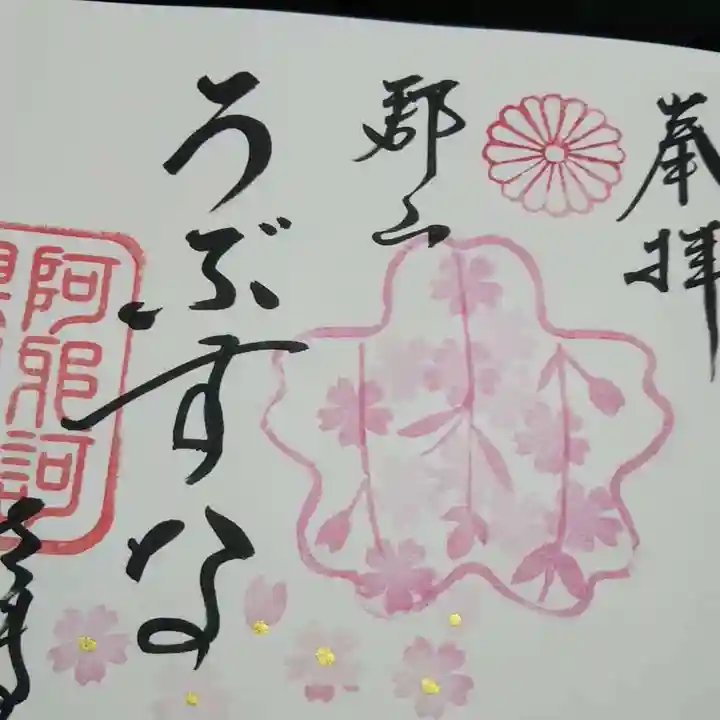 奉拝
郡山
うぶすな
阿邪訶